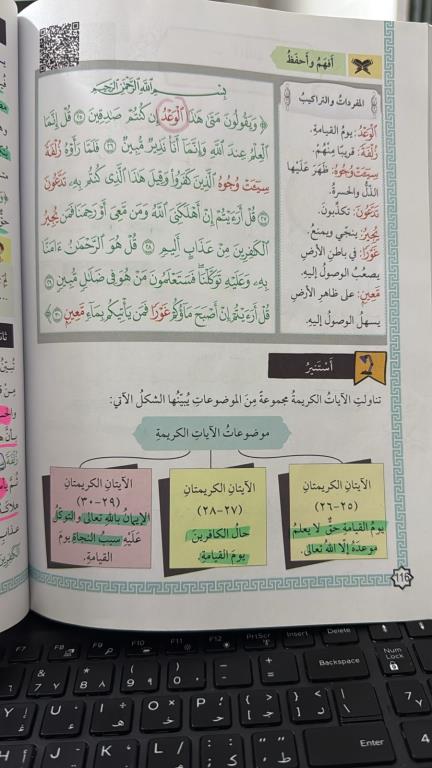 أَفْهَمُ وَأَحْفَظُ
المفرداتُ والتراكيبُ
الْوَعْدُ: يومُ القيامةِ.
زُلْفَةً: قريبًا مِنْهُمْ.
سِيئَتْ وُجُوهُ: ظَهَرَ عَلَيْها
الذُّلُّ والحسرةُ.
تَدَّعُونَ: تكذِّبونَ.
يُجِيرُ: ينجّي ويمنعُ.
غَوْرًا: في باطنِ الأرضِ
يصعُبُ الوصولُ إليهِ.
مَعِينٍ: على ظاهرِ الأرضِ
يسهلُ الوصولُ إليهِ.
بِسْمِ اللَّهِ الرَّحْمَٰنِ الرَّحِيمِ
﴿ وَيَقُولُونَ مَتَىٰ هَٰذَا الْوَعْدُ إِن كُنتُمْ صَٰدِقِينَ ٢٥ قُلْ إِنَّمَا
الْعِلْمُ عِندَ اللَّهِ وَإِنَّمَا أَنَا۠ نَذِيرٌ مُّبِينٌ ٢٦ فَلَمَّا رَأَوْهُ زُلْفَةً
سِيئَتْ وُجُوهُ الَّذِينَ كَفَرُوا وَقِيلَ هَٰذَا الَّذِي كُنتُم بِهِۦ تَدَّعُونَ
٢٧ قُلْ أَرَءَيْتُمْ إِنْ أَهْلَكَنِيَ اللَّهُ وَمَن مَّعِيَ أَوْ رَحِمَنَا فَمَن يُجِيرُ
الْكَٰفِرِينَ مِنْ عَذَابٍ أَلِيمٍ ٢٨ قُلْ هُوَ الرَّحْمَٰنُ ءَامَنَّا
بِهِۦ وَعَلَيْهِ تَوَكَّلْنَا فَسَتَعْلَمُونَ مَنْ هُوَ فِي ضَلَٰلٍ مُّبِينٍ ٢٩
قُلْ أَرَءَيْتُمْ إِنْ أَصْبَحَ مَاؤُكُمْ غَوْرًا فَمَن يَأْتِيكُم بِمَاءٍ مَّعِينٍ ٣٠ ﴾
أَسْتَنيرُ
تناولتِ الآياتُ الكريمةُ مجموعةً مِنَ الموضوعاتِ يُبيِّنُها الشكلُ الآتي:
موضوعاتُ الآياتِ الكريمةِ
الآيتانِ الكريمتانِ
(٢٥-٢٦)
يومُ القيامةِ حقٌّ لا يعلمُ
موعدَهُ إلّا اللهُ تعالى.
الآيتانِ الكريمتانِ
(٢٧-٢٨)
حالُ الكافرينَ
يومَ القيامةِ.
الآيتانِ الكريمتانِ
(٢٩-٣٠)
الإيمانُ باللهِ تعالى والتوكّلُ
عَلَيْهِ سببُ النجاةِ يومَ
القيامةِ.
116
F7 F8 F9 F10 F11 F12 PrtScr Insert Delete
& 7 * 8 ( 9 ) 0 - + = Backspace Num Lock
Y U I O P Enter
H J K L